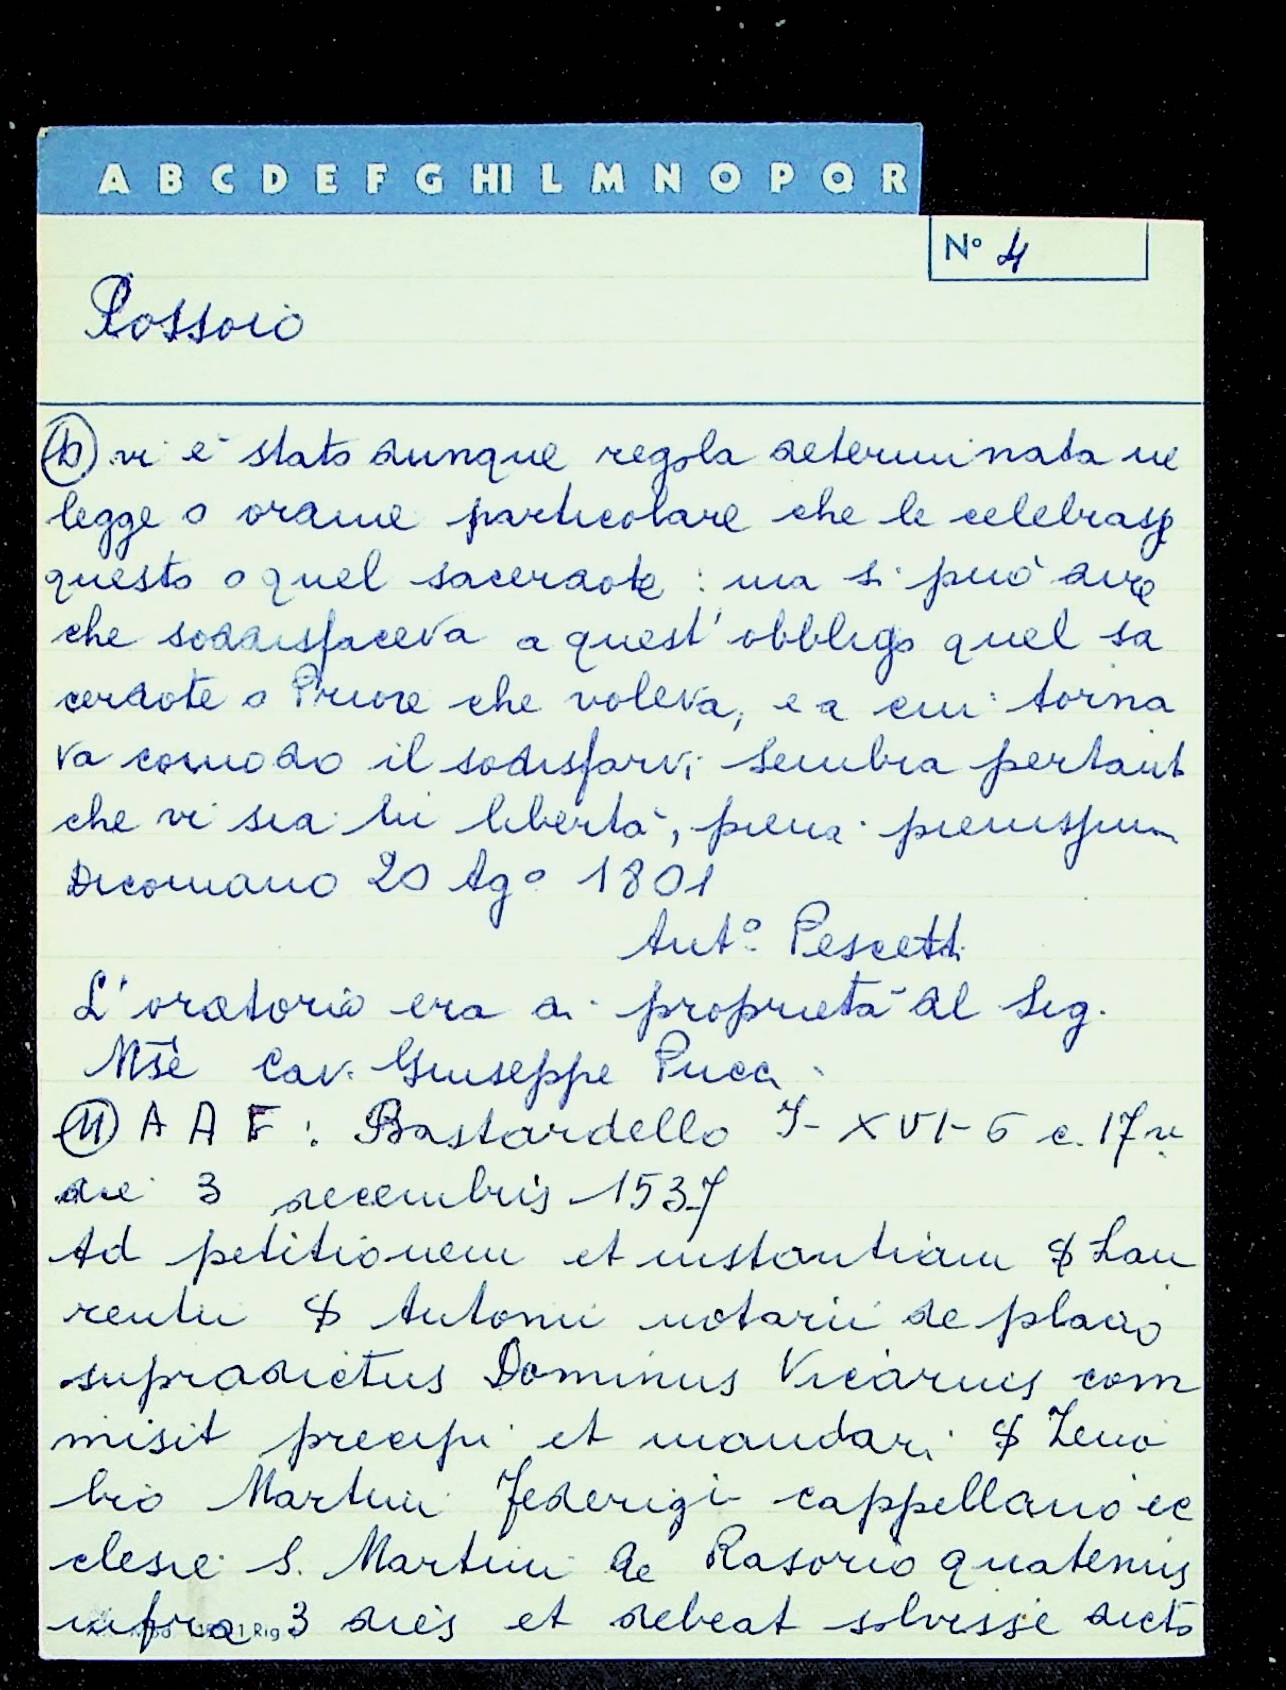 A B C D E F G HI L M N O P Q R
N° 4
Rossoio
(b) vi è stato dunque regola determinata ne
legge o ordine particolare che le celebrasse
questo o quel sacerdote : ma si può dire
che soddisfaceva a quest' obbligo quel sa
cerdote o Priore che voleva, e a cui torna
va comodo il sodisfarvi. Sembra pertanto
che vi sia in libertà, piena
Dicomano 20 Ag° 1801
Ant°. Pescetti
L'oratorio era di proprietà del Sig.
Mse Cav. Giuseppe Pucci.
(11) A A F : Bastardello I - XVI - 6 c. 17 v
die 3 decembris 1537
Ad petitionem et instantiam $ Lau
rentii $ Antonii notarii de
supradictus Dominus Vicarius com
misit precipi et mandari $ Zeno
bio Martini Federigi cappellano ec
clesie S. Martini de Rasorio quatenus
infra 3 dies et debeat solvisse dicto